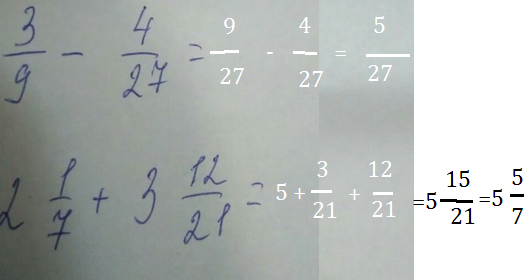 3/9 - 4/27 = 9/27 - 4/27 = 5/27
2 1/7 + 3 12/21 = 5 + 3/21 + 12/21 = 5 15/21 = 5 5/7